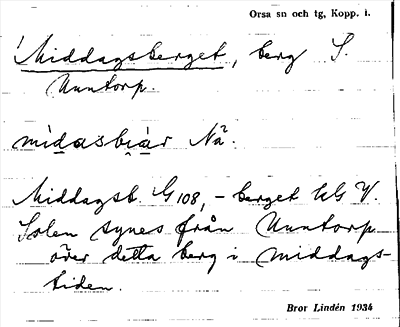 Orsa sn och tg, Kopp. l.
Middagsberget, berg S.
Nuntorp.
midasbiär Nä.
Middagsb. G 108, - berget kG V.
Solen synes från Nuntorp
över detta berg i middags-
tiden.
Bror Lindén 1934